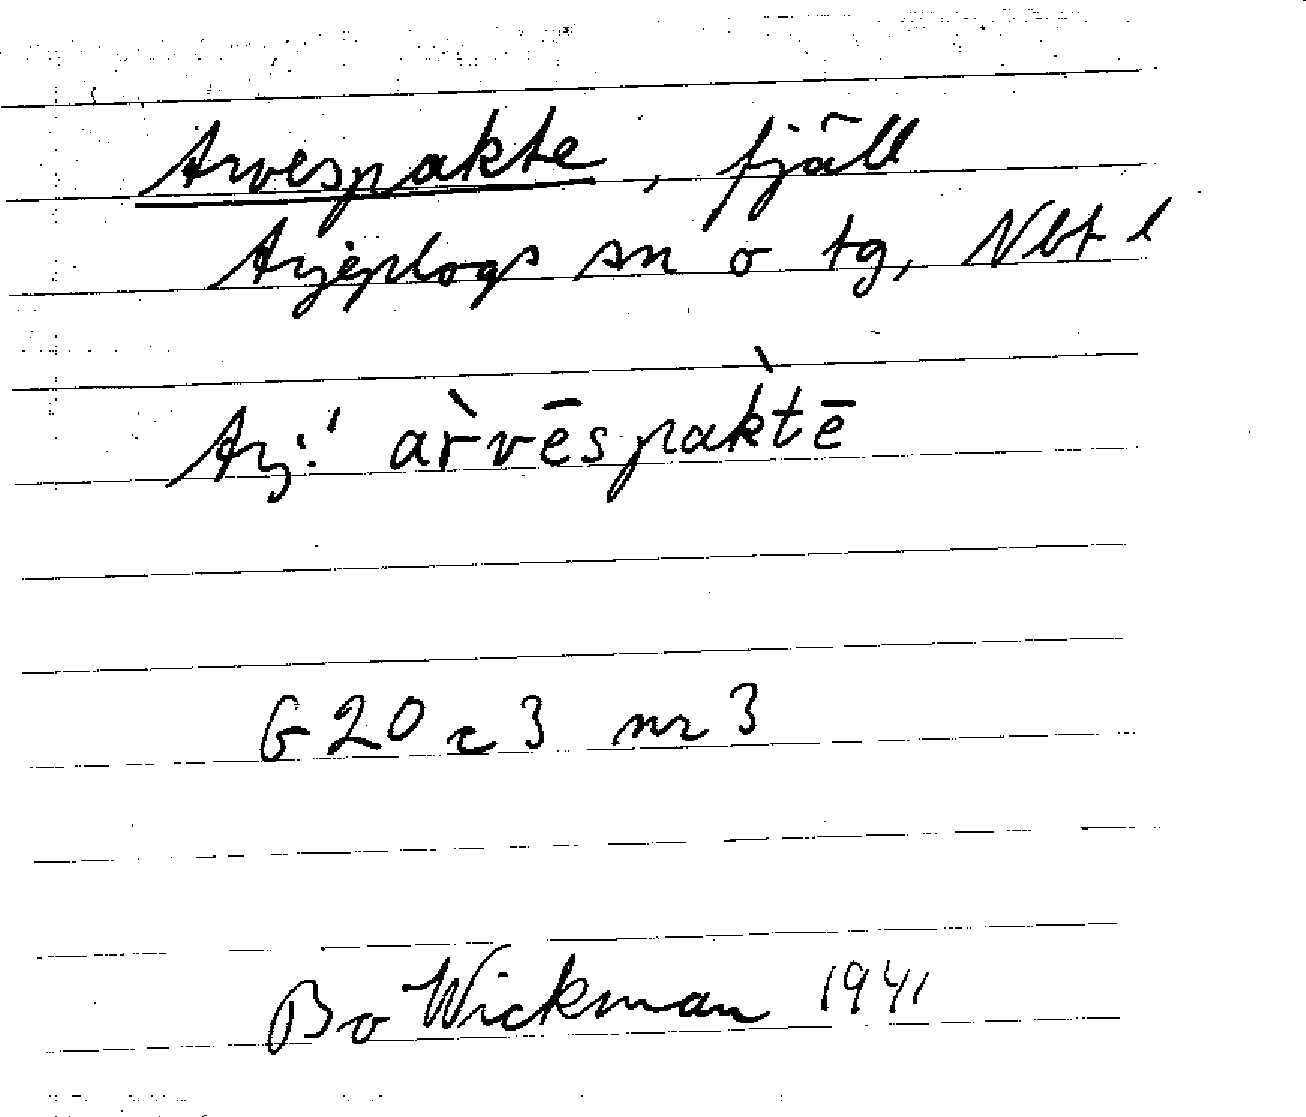 Arvespakte, fjäll
Arjeplogs sn o tg, Nbt l
Arj.' àr̀vēspak̀tē
G 20 c 3 nr 3
Bo Wickman 1941